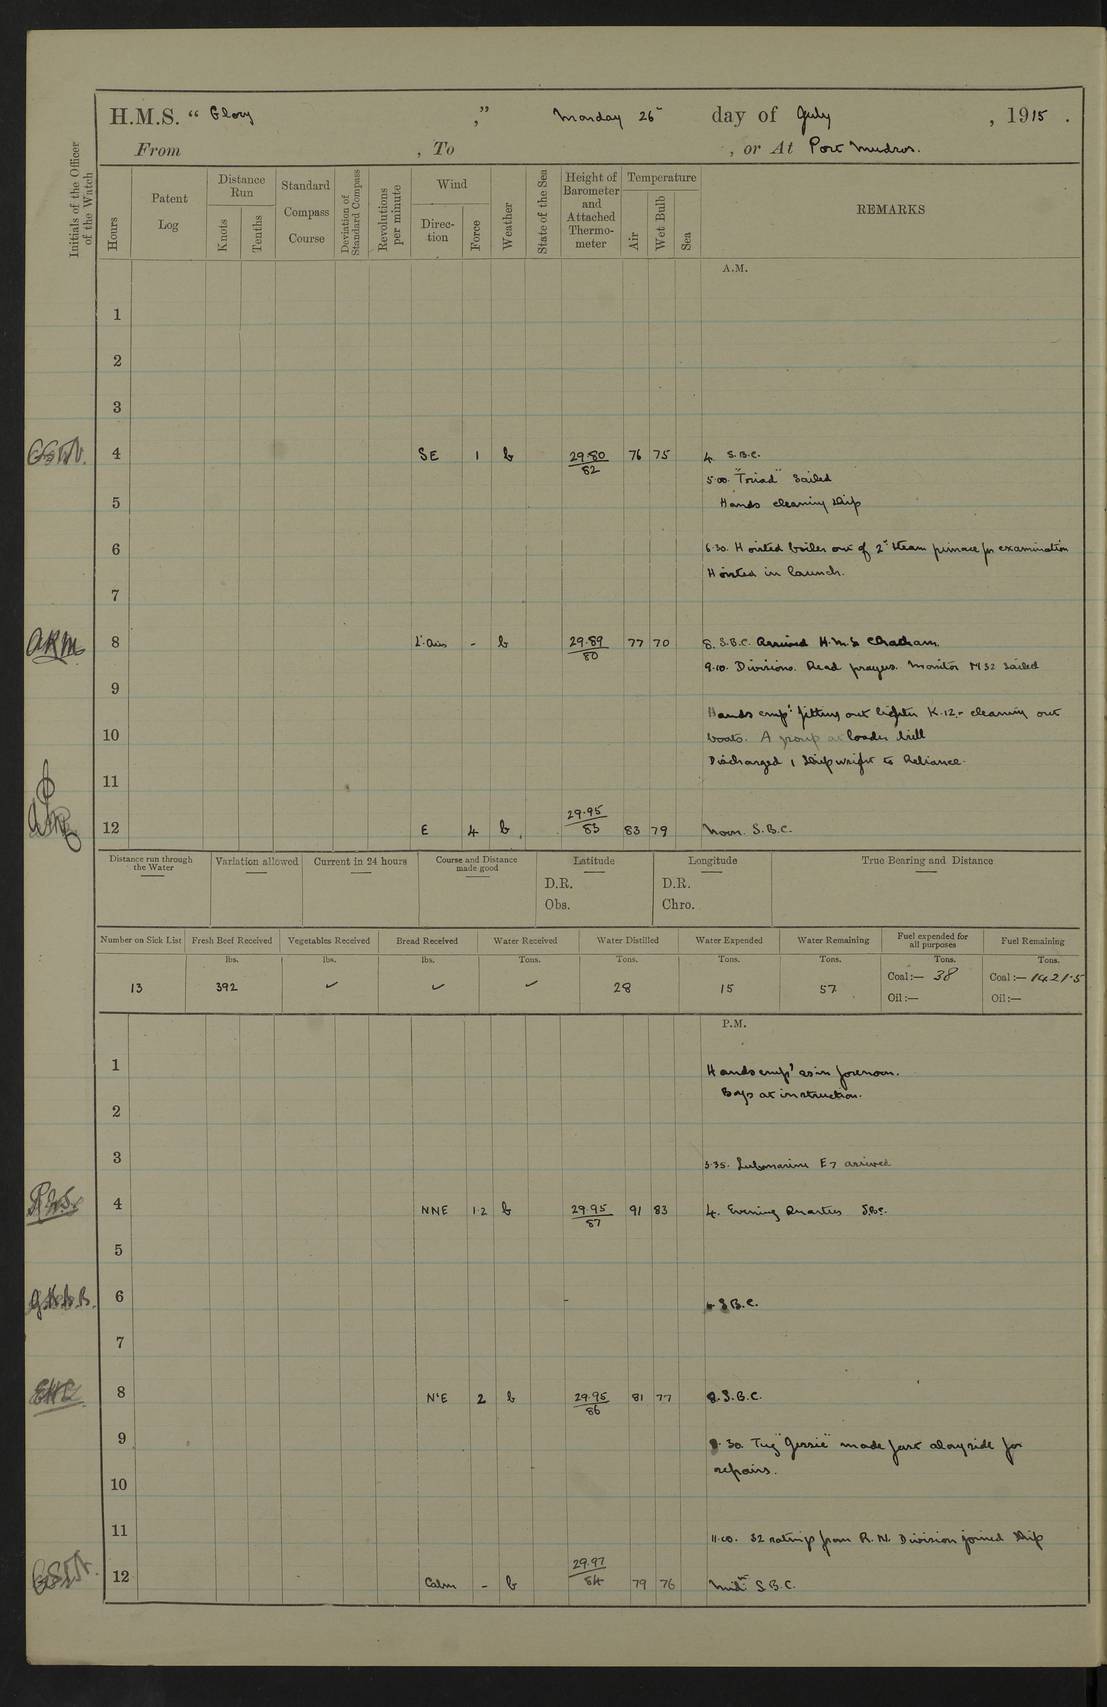 H.M.S. “ Glory ,” Monday 26th day of July , 1915 .
From , To , or At Port Mudros.
Initials of the Officer of the Watch
Hours
Patent Log
Distance Run
Knots
Tenths
Standard Compass Course
Deviation of Standard Compass
Revolutions per minute
Wind
Direction
Force
Weather
State of the Sea
Height of Barometer and Attached Thermometer
Temperature
Air
Wet Bulb
Sea
REMARKS
A.M.
1
2
3
4 SE 1 b 29.80 82 76 75 4. S.B.C.
5.00. "Triad" sailed
5 Hands cleaning ship
6 6.30. Hoisted boiler out of 2nd steam pinnace for examination
Hoisted in launch.
7
8 Lt. airs - b 29.89 80 77 70 8. S.B.C. Arrived H.M.S Chatham.
9.10. Divisions. Read prayers. Monitor M32 sailed
9
Hands empd. fitting out lighter K.12.- cleaning out
10 boats. A group at loader drill
Discharged 1 Shipwright to Reliance.
11
12 E 4 b. 29.95 83 83 79 Noon. S.B.C.
Distance run through the Water
Variation allowed
Current in 24 hours
Course and Distance made good
Latitude
D.R.
Obs.
Longitude
D.R.
Chro.
True Bearing and Distance
Number on Sick List Fresh Beef Received Vegetables Received Bread Received Water Received Water Distilled Water Expended Water Remaining Fuel expended for all purposes Fuel Remaining
lbs. lbs. lbs. Tons. Tons. Tons. Tons. Tons. Tons.
13 392 ✓ ✓ ✓ 28 15 57 Coal :— 38 Coal :— 1421.5
Oil :— Oil :—
P.M.
1 Hands empd as in forenoon.
Boys at instruction.
2
3 3.35. Submarine E7 arrived
4 NNE 1.2 b 29.95 87 91 83 4. Evening Quarters S.B.C.
5
6 6 S.B.C.
7
8 N'E 2 b 29.95 86 81 77 8. S.B.C.
9 8.30. Tug "Jessie" made fast alongside for
repairs.
10
11 11.00. 52 ratings from R.N. Division joined ship
12 Calm - b 29.97 84 79 76 Midt. S.B.C.